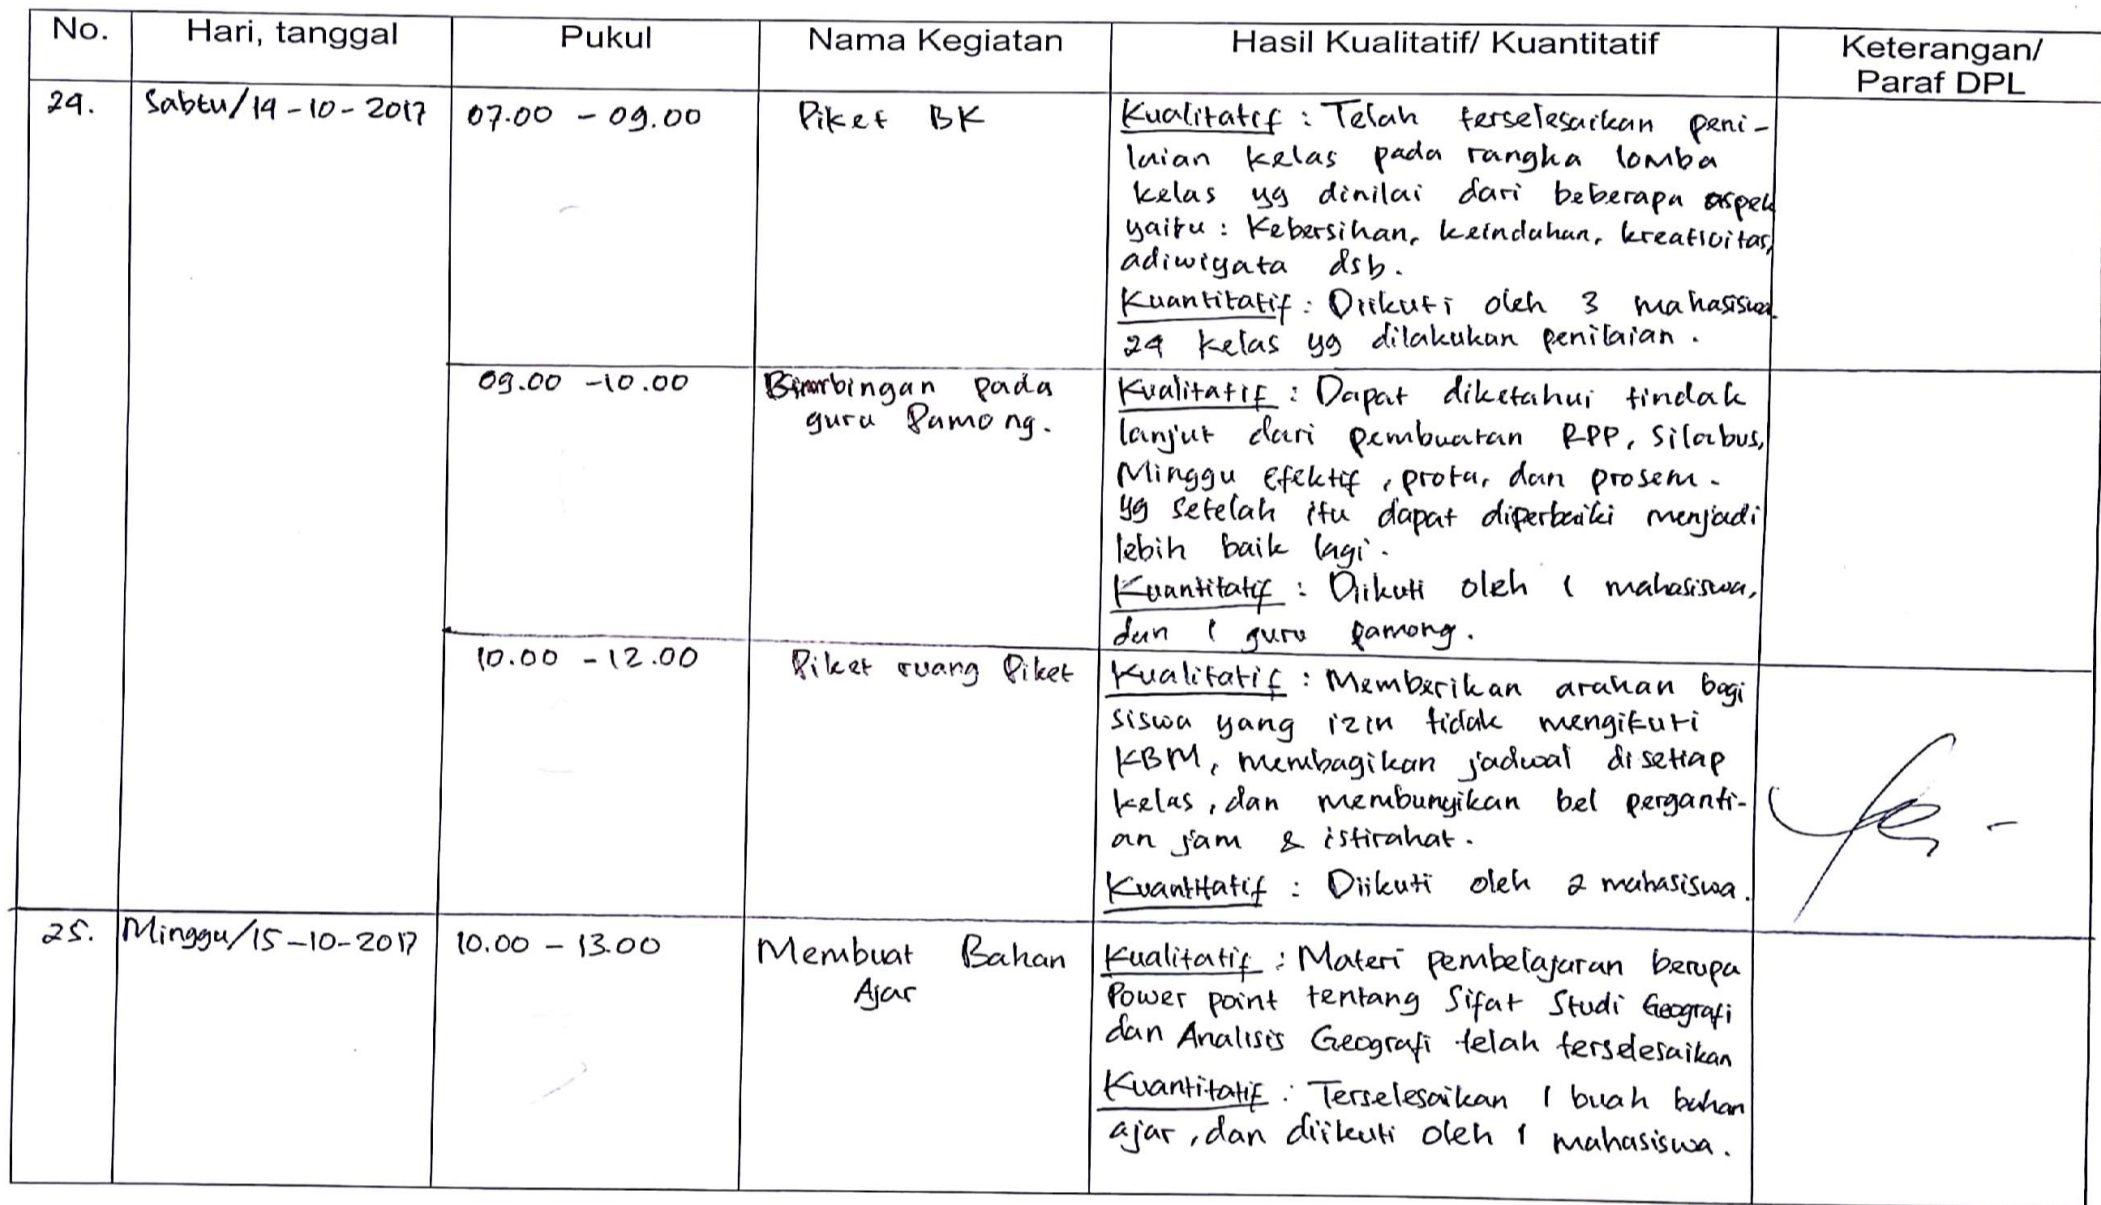 No. Hari, tanggal Pukul Nama Kegiatan Hasil Kualitatif/ Kuantitatif Keterangan/
Paraf DPL
24. Sabtu/14-10-2017 07.00 - 09.00 Piket BK Kualitatif : Telah terselesaikan peni-
laian kelas pada rangka lomba
kelas yg dinilai dari beberapa aspek
yaitu : Kebersihan, keindahan, kreativitas,
adiwiyata dsb.
Kuantitatif : Diikuti oleh 3 mahasiswa
24 kelas yg dilakukan penilaian.
09.00 -10.00 Bimbingan pada Kualitatif : Dapat diketahui tindak
guru Pamong. lanjut dari pembuatan RPP, Silabus,
Minggu Efektif, prota, dan prosem.
yg setelah itu dapat diperbaiki menjadi
lebih baik lagi.
Kuantitatif : Diikuti oleh 1 mahasiswa,
dan 1 guru pamong.
10.00 - 12.00 Piket ruang Piket Kualitatif : Memberikan arahan bagi
siswa yang izin tidak mengikuti
KBM, membagikan jadwal disetiap
kelas, dan membunyikan bel perganti-
an jam & istirahat.
Kuantitatif : Diikuti oleh 2 mahasiswa.
25. Minggu/15-10-2017 10.00 - 13.00 Membuat Bahan Kualitatif : Materi pembelajaran berupa
Ajar Power point tentang Sifat Studi Geografi
dan Analisis Geografi telah terselesaikan
Kuantitatif : Terselesaikan 1 buah bahan
ajar, dan diikuti oleh 1 mahasiswa.